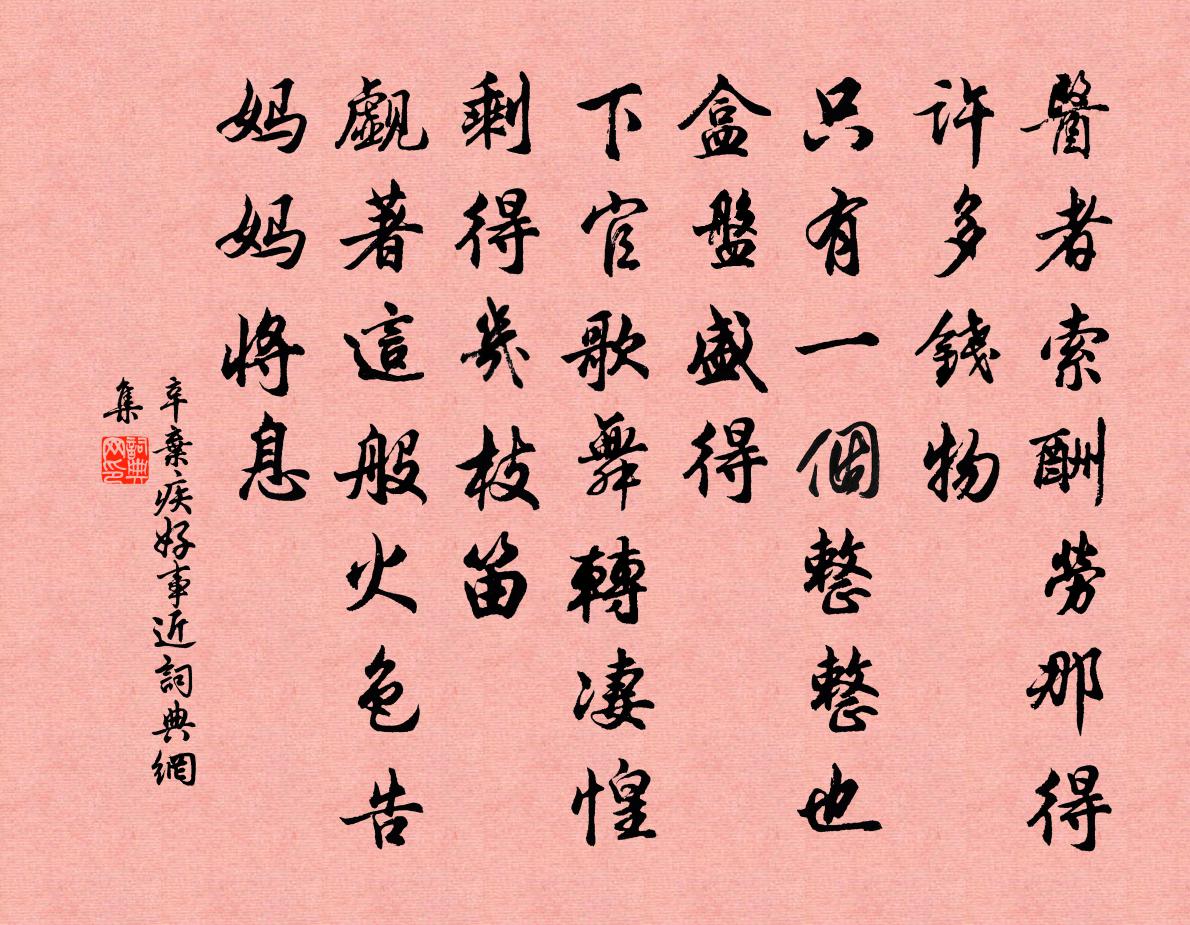 醫者索酬勞那得
許多錢物
只有一個整整也
盒盤盛得
下官歌舞轉凄惶
剩得幾枝笛
覷著這般火色告
媽媽將息
辛棄疾好事近詞典網
集
詞典網印